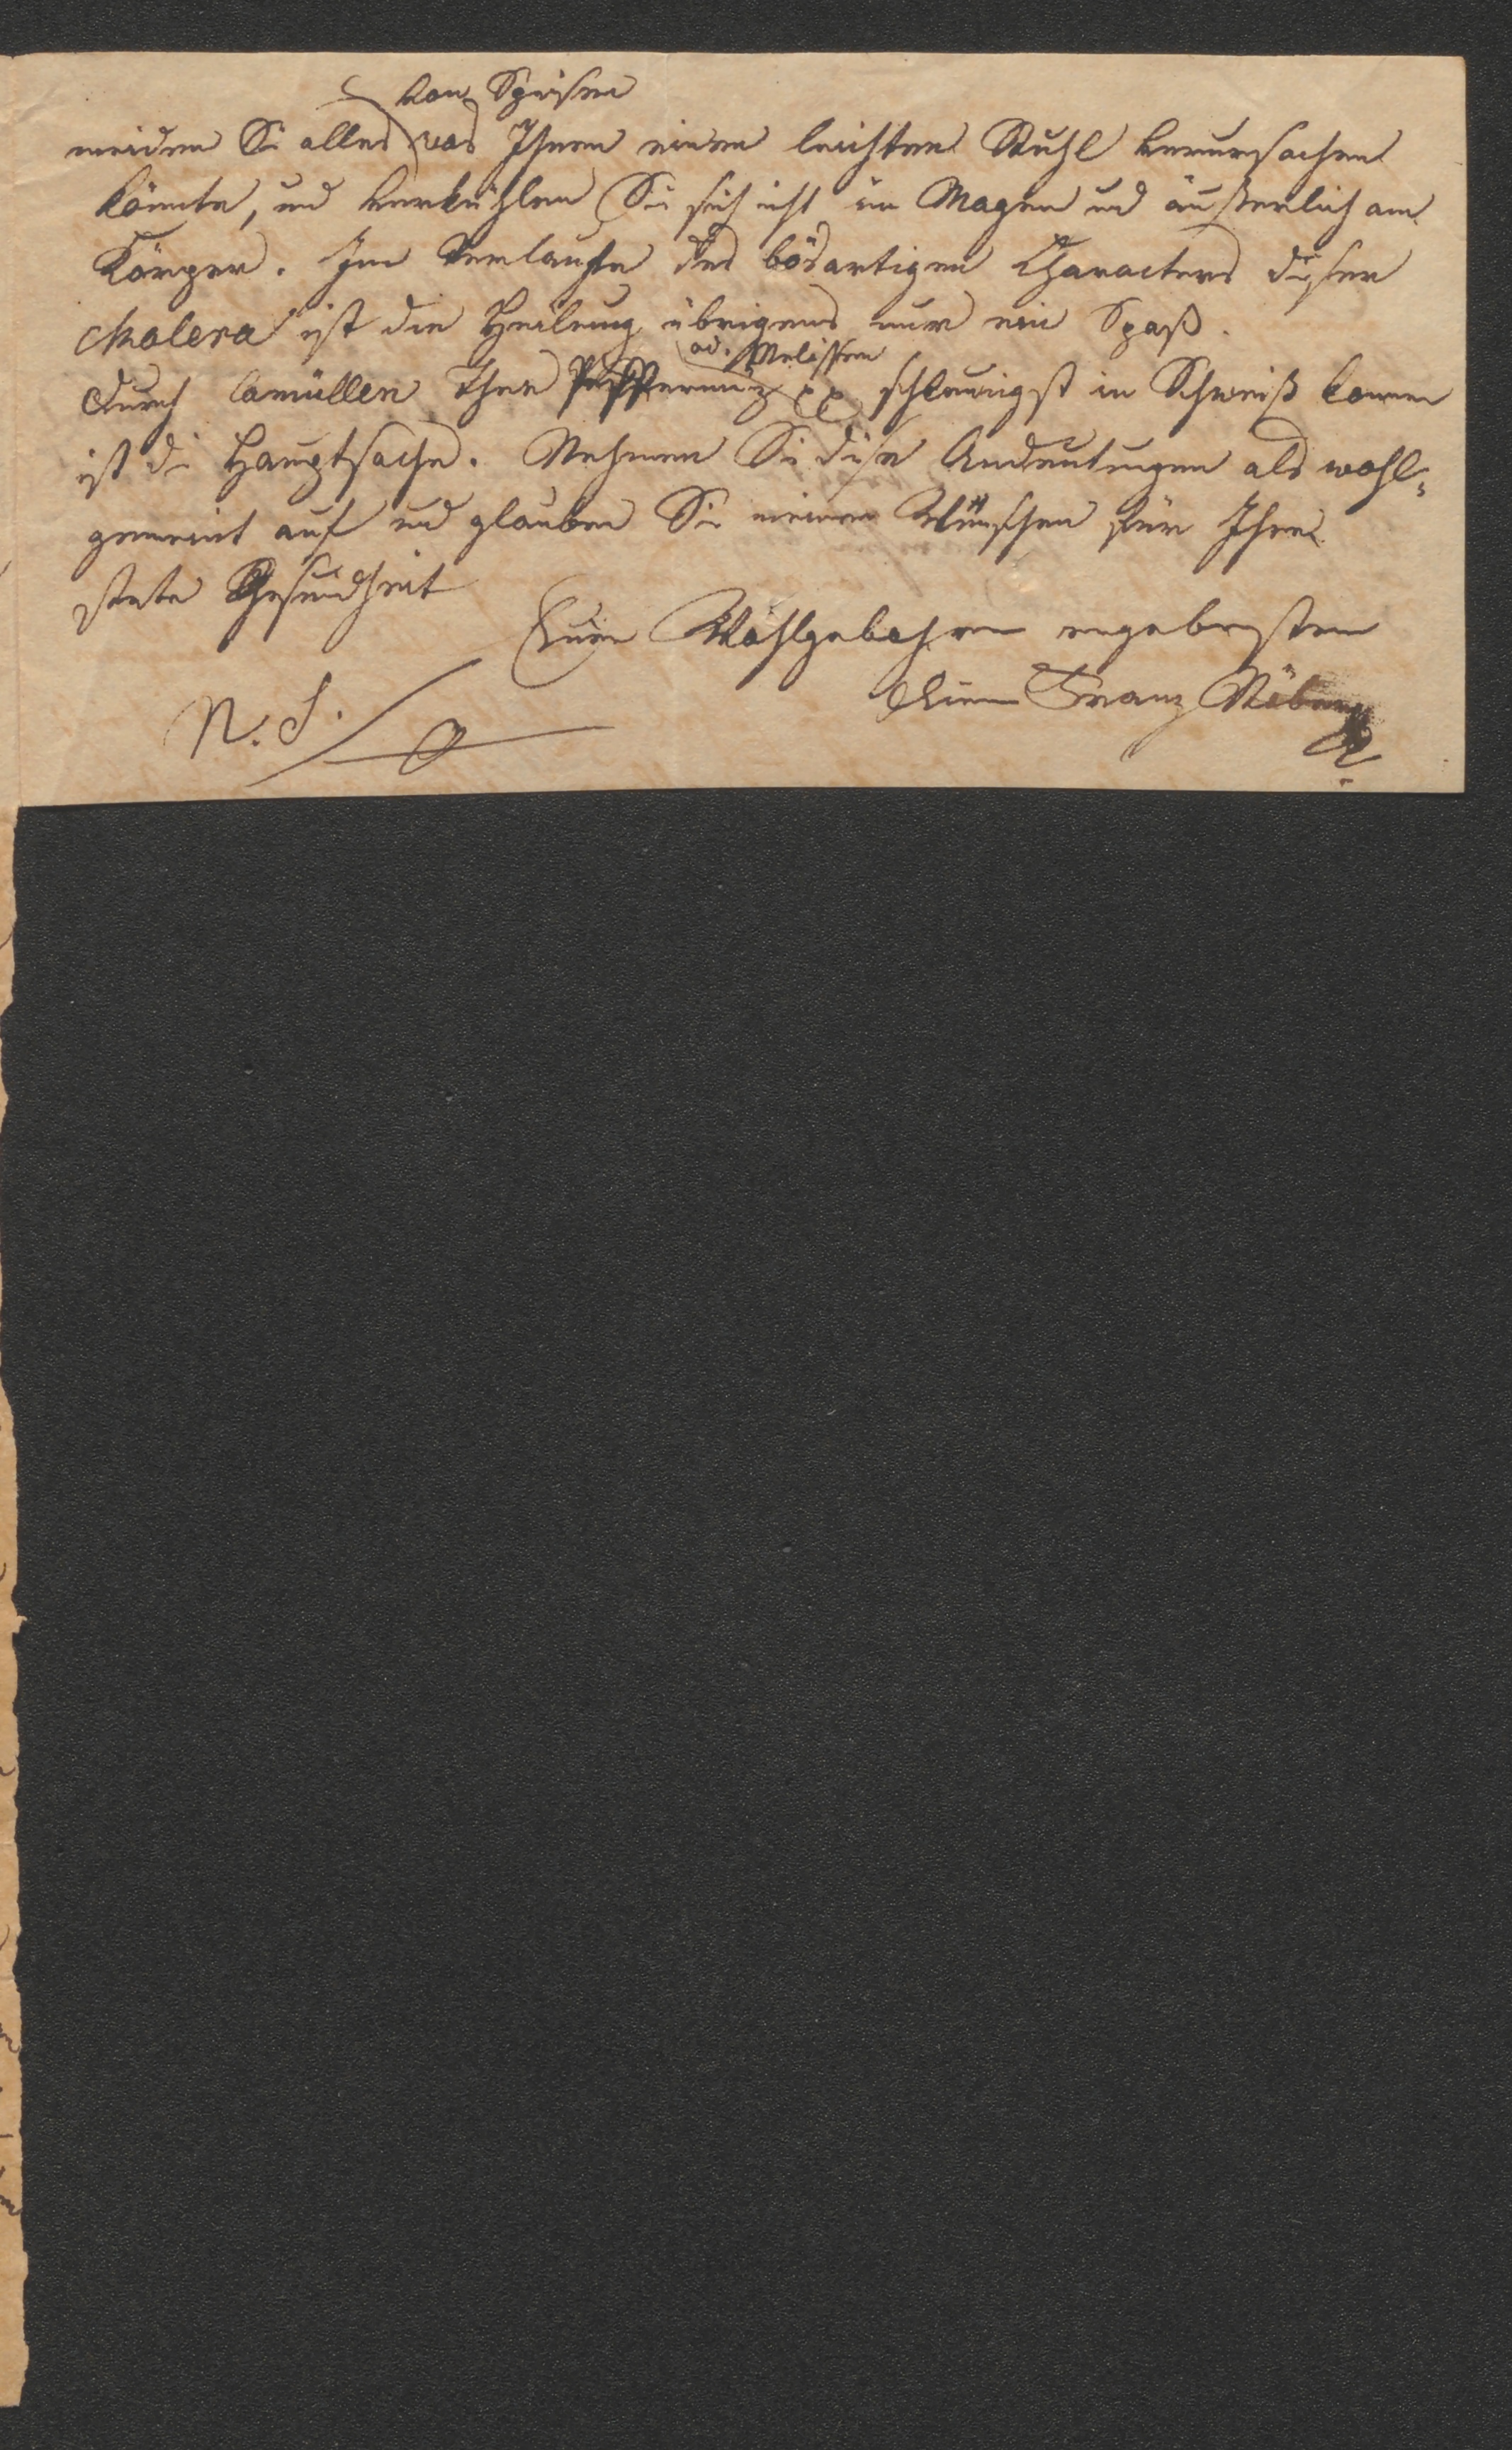 von Speisen
meiden Sie alles was Ihnen einen leichten Stuhl verursachen
könnte, und verkühlen Sie sich nicht im Magen und äußerlich am
Körper. Im Verlaufe des bösartigen Characters dieser
cholera ist die Heilung übrigens nur ein Spaß.
od. Melissen
Durch Camillen Thee Pfefferminz schleunigst in Schweiß kommen
ist die Hauptsache. Nehmen Sie diese Andeutungen als wohl=
gemeint auf und glauben Sie meinen Wünschen für Ihre
stete Gesundheit
Euer Wohlgebohren ergebensten
Diener Franz
N. S.